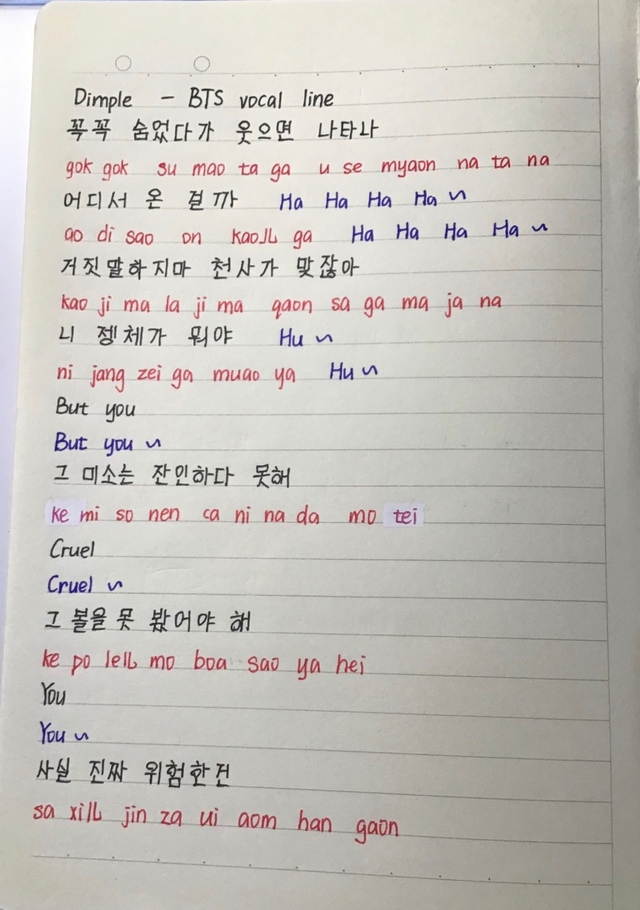 Dimple - BTS vocal line
꼭꼭 숨었다가 웃으면 나타나
gok gok su mao ta ga u se myaon na ta na
어디서 온 걸까 Ha Ha Ha Ha ~
ao di sao on kaoJL ga Ha Ha Ha Ha ~
거짓말하지마 천사가 맞잖아
kao ji ma la ji ma qaon sa ga ma ja na
니 젱체가 뭐야 Hu ~
ni jang zei ga muao ya Hu ~
But you
But you ~
그 미소는 잔인하다 못해
ke mi so nen ca ni na da mo tei
Cruel
Cruel ~
그 볼을 못 봤어야 해
ke po lelL mo boa sao ya hei
You
You ~
사실 진짜 위험한건
sa xilL jin za ui aom han gaon